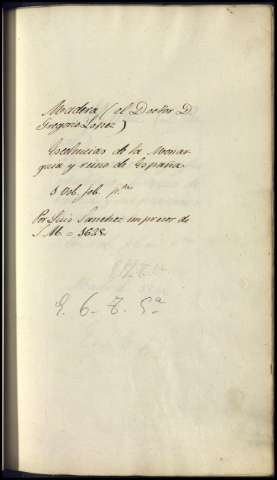 Madera (el Doctor D.
Gregorio Lopez)
Excelencias de la Monar
quia y reino de España
Por Luis Sanchez impresor de
S. M. =
E. 6 - 7. 5ª